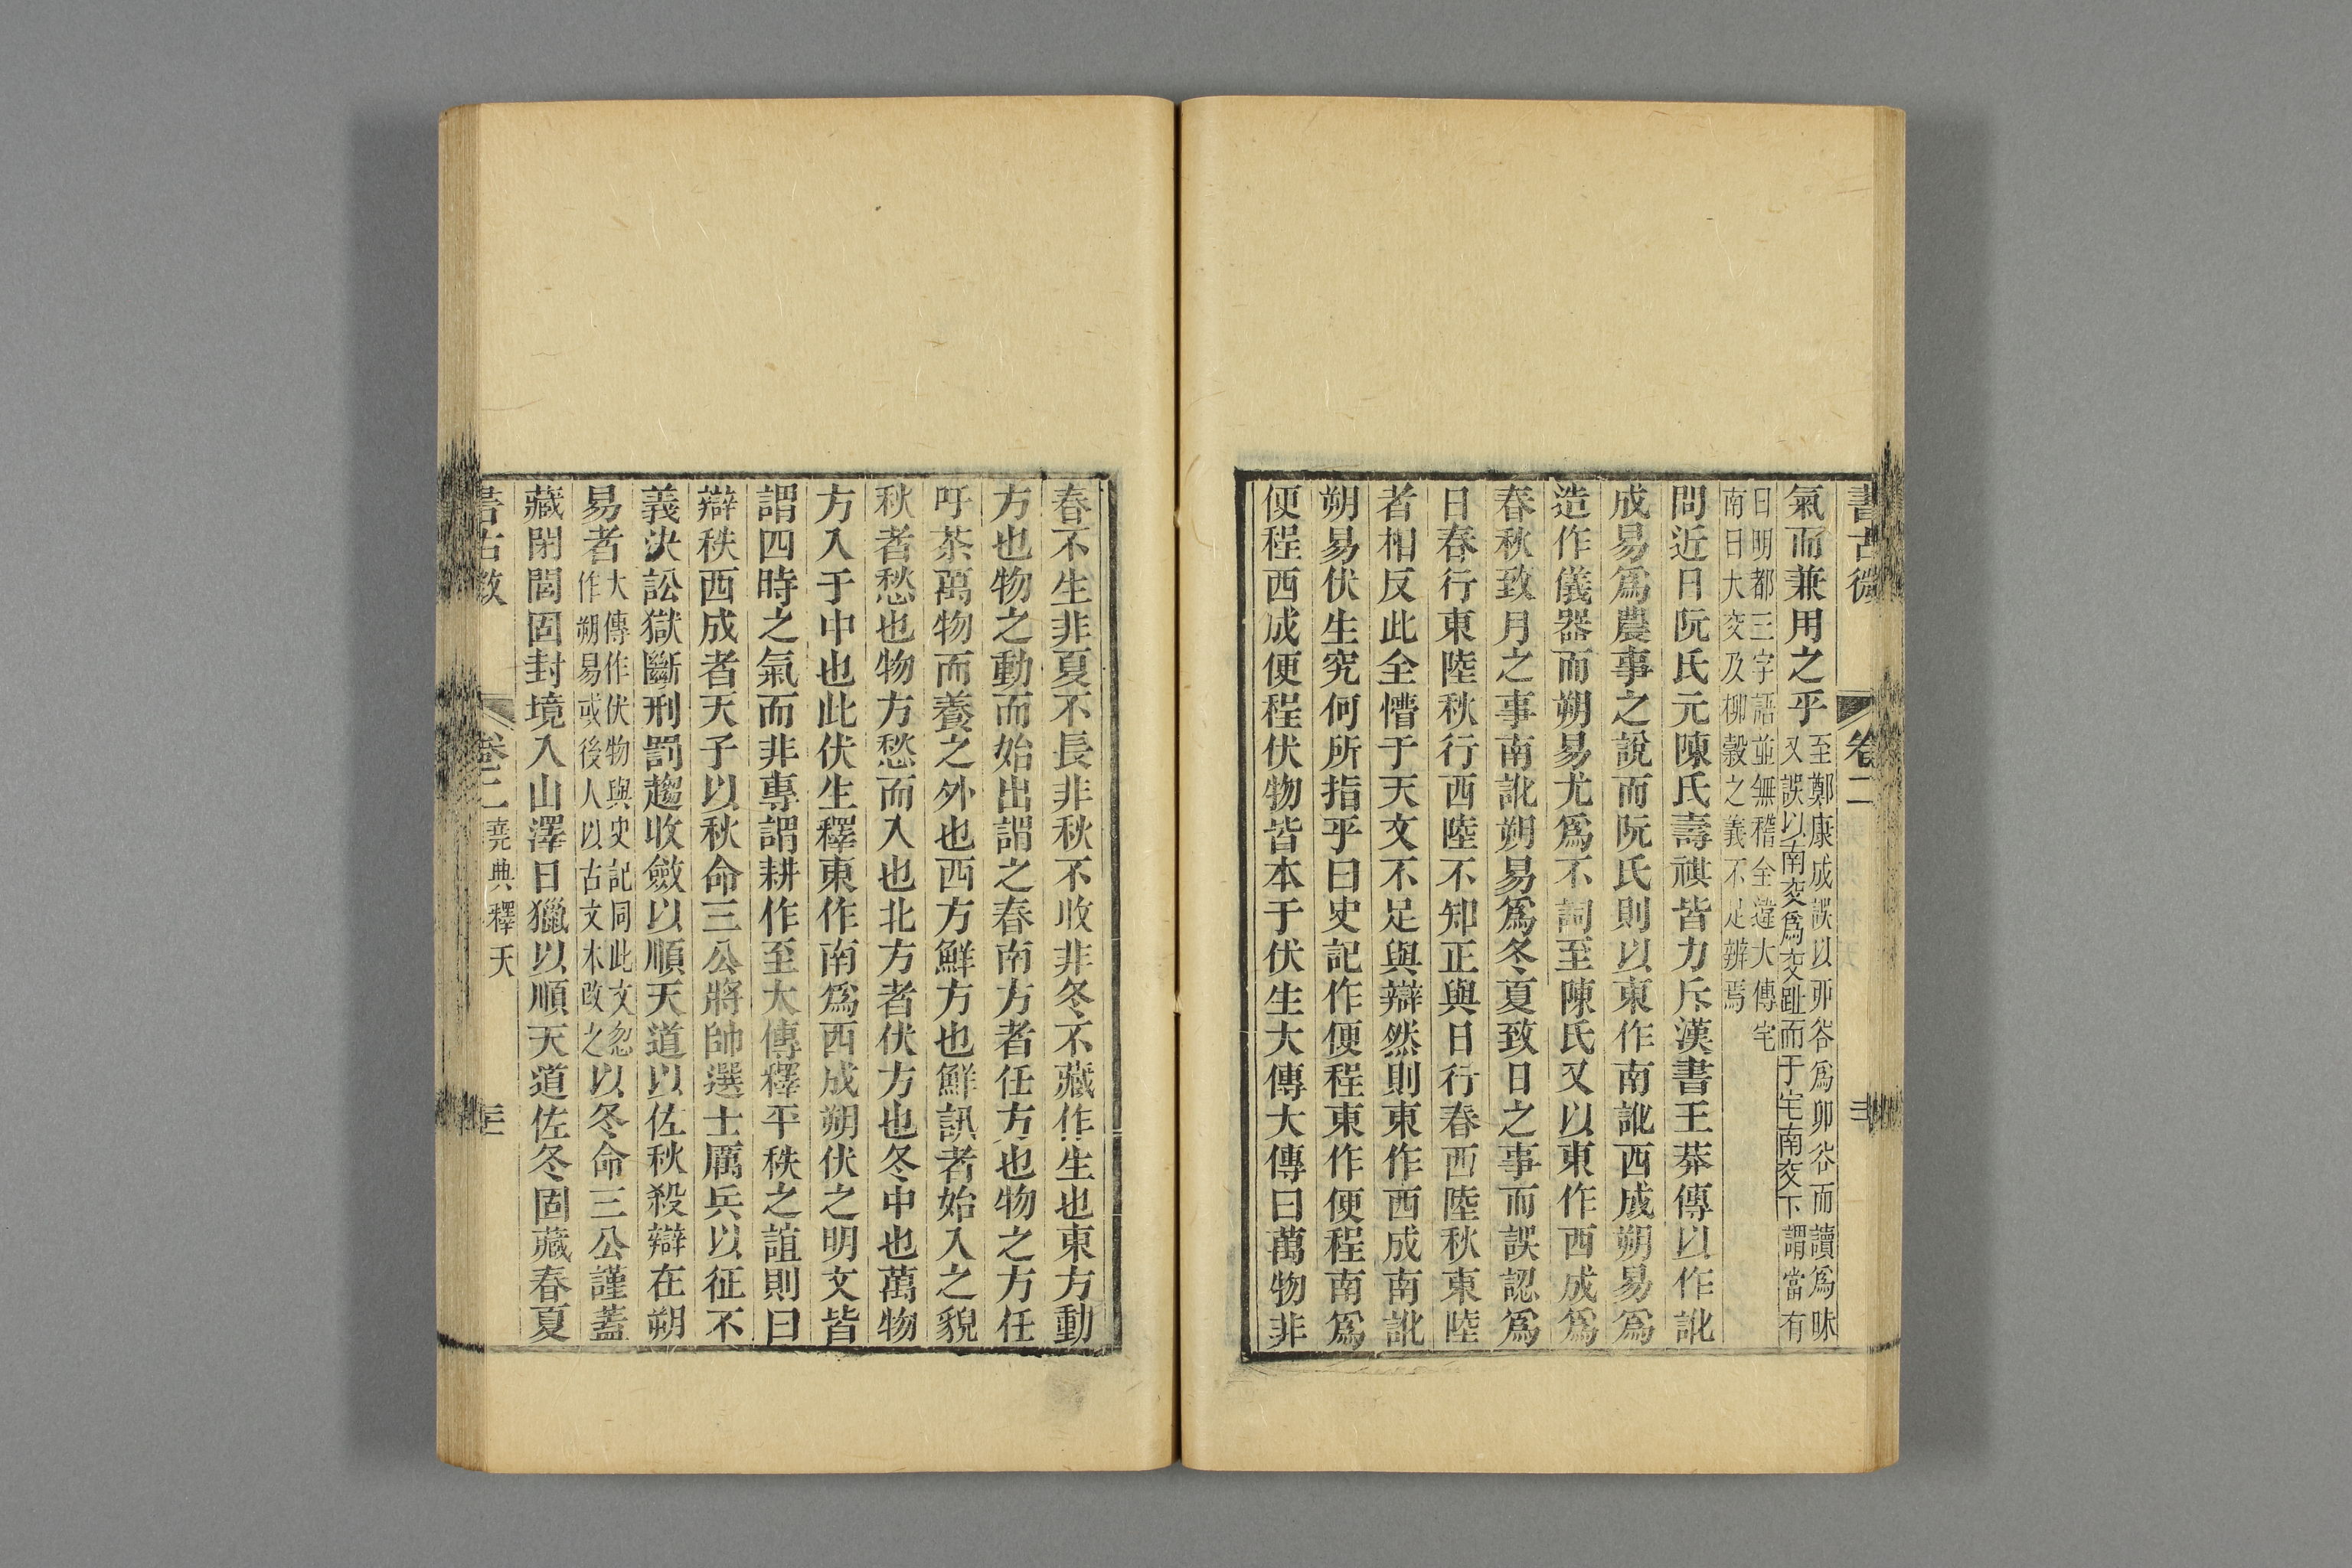 書古微 卷二
氣而兼用之乎至鄭康成誤以丣谷爲卯谷而讀爲昧
又誤以南交爲交趾而于宅南交下謂當有
曰明都三字語並無稽全違大傳宅
南曰大交及柳穀之義不足辨焉
問近日阮氏元陳氏壽祺皆力斥漢書王莽傳以作訛
成易爲農事之說而阮氏則以東作南訛西成朔易爲
造作儀器而朔易尤爲不詞至陳氏又以東作西成爲
春秋致月之事南訛朔易爲冬夏致日之事而誤認爲
日春行東陸秋行西陸不知正與日行春西陸秋東陸
者相反此全懵于天文不足與辯然則東作西成南訛
朔易伏生究何所指乎曰史記作便程東作便程南爲
便程西成便程伏物皆本于伏生大傳大傳曰萬物非
春不生非夏不長非秋不收非冬不藏作生也東方動
方也物之動而始出謂之春南方者任方也物之方任
吁荼萬物而養之外也西方鮮方也鮮訊者始入之貌
秋者愁也物方愁而入也北方者伏方也冬中也萬物
方入于中也此伏生釋東作南爲西成朔伏之明文皆
謂四時之氣而非專謂耕作至大傳釋平秩之誼則曰
辯秩西成者天子以秋命三公將帥選士厲兵以征不
義決訟獄斷刑罰趨收斂以順天道以佐秋殺辯在朔
易者大傳作伏物與史記同此文忽
作朔易或後人以古文本改之以冬命三公謹蓋
藏閉閭固封境入山澤日獵以順天道佐冬固藏春夏
書古微 卷二 堯典釋天